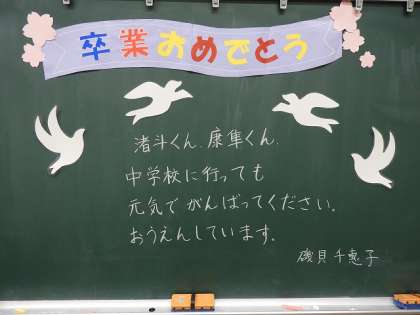 卒業おめでとう
渚斗くん、康隼くん、
中学校に行っても
元気でがんばってください。
おうえんしています。
磯貝千恵子